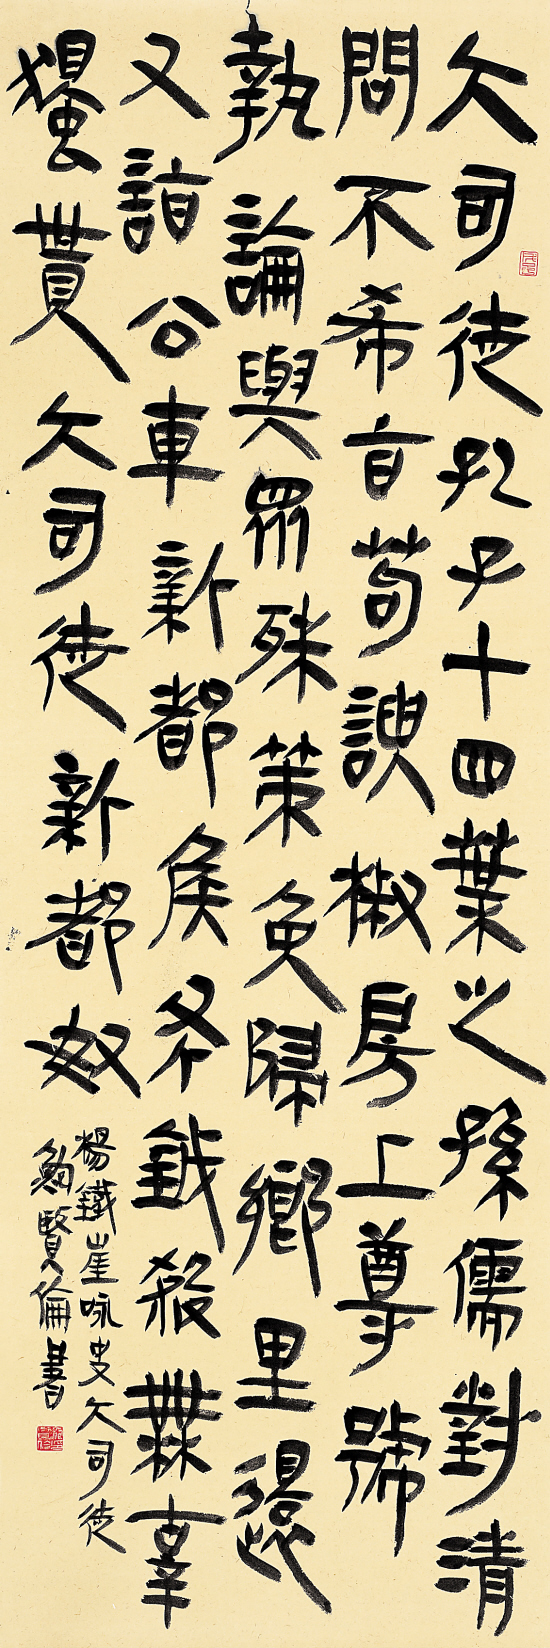 大司徒孔子十四葉之孫儒對清
問不希旨苟諛椒房上尊號
執論與眾殊策免歸鄉里還
又詣公車新都侯斧鉞殺無辜
獨貰大司徒新都奴
楊鐵崖咏史大司徒
鮑賢倫書